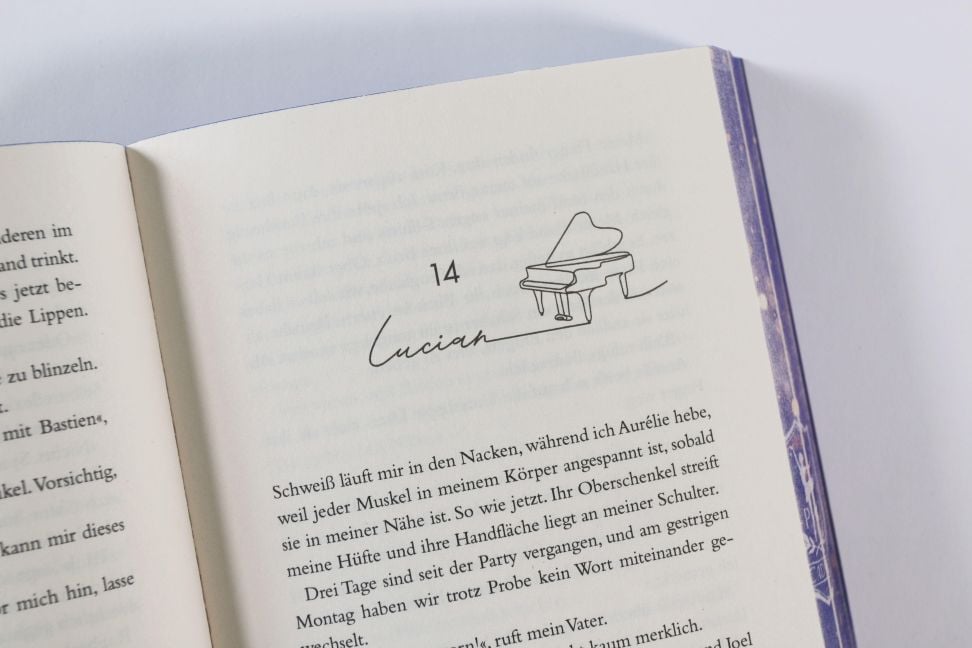 deren im
and trinkt.
s jetzt be-
die Lippen.
zu blinzeln.
t.
mit Bastien«,
kel. Vorsichtig,
kann mir dieses
or mich hin, lasse
14
Lucian
Schweiß läuft mir in den Nacken, während ich Aurélie hebe,
weil jeder Muskel in meinem Körper angespannt ist, sobald
sie in meiner Nähe ist. So wie jetzt. Ihr Oberschenkel streift
meine Hüfte und ihre Handfläche liegt an meiner Schulter.
Drei Tage sind seit der Party vergangen, und am gestrigen
Montag haben wir trotz Probe kein Wort miteinander ge-
wechselt.
orn!«, ruft mein Vater.
kaum merklich.
nd Joel